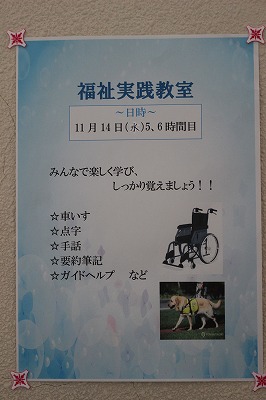 福祉実践教室
~日時~
11月14日(水)5、6時間目
みんなで楽しく学び、
しっかり覚えましょう!!
☆車いす
☆点字
☆手話
☆要約筆記
☆ガイドヘルプ など